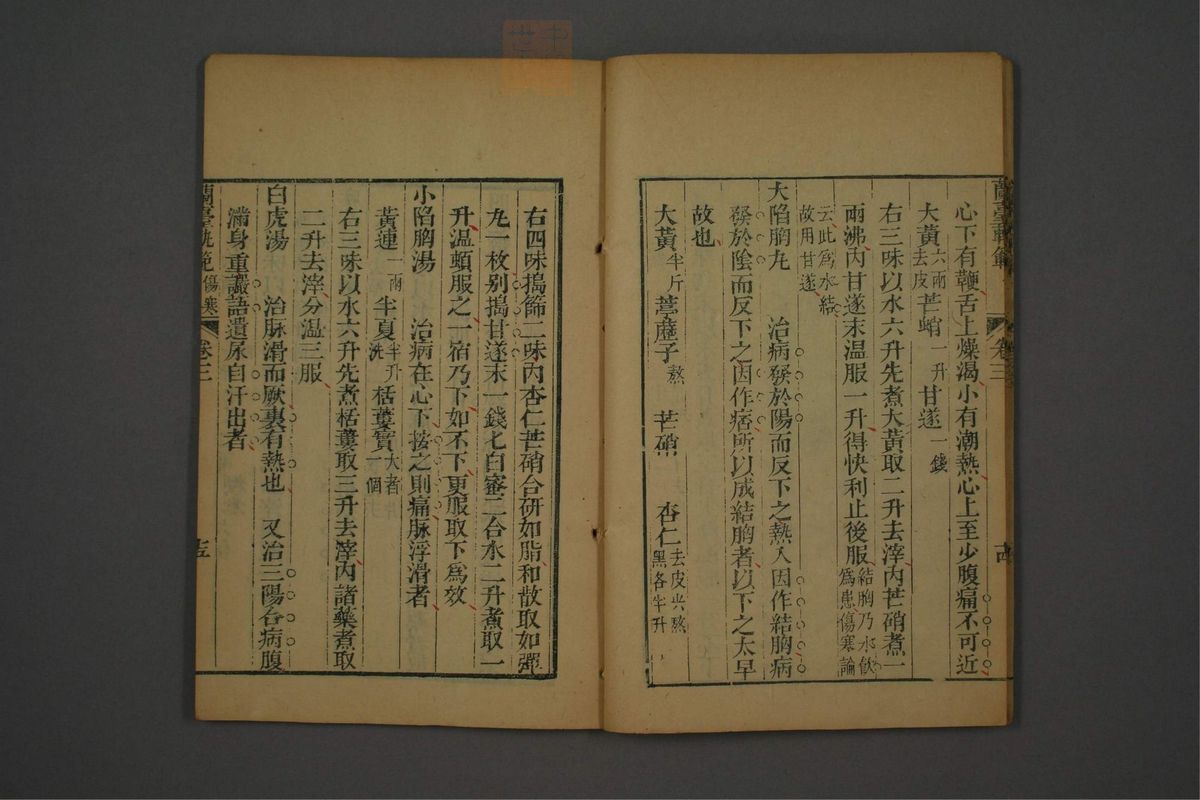 蘭臺軌範
卷三
古
心下有鞕舌上燥渴小有潮熱心上至少腹痛不可近
大黃六兩去皮 芒硝一升 甘遂一錢
右三味以水六升先煮大黃取二升去滓內芒硝煮一
兩沸內甘遂末温服一升得快利止後服結胸乃水飲爲患傷寒論
云此爲水結故用甘遂
大陷胸丸 治病發於陽而反下之熱入因作結胸病
發於陰而反下之因作痞所以成結胸者以下之太早
故也
大黃半斤 葶藶子熬 芒硝 杏仁去皮尖熬黑各半升
右四味搗篩二味內杏仁芒硝合研如脂和散取如彈
丸一枚别搗甘遂末一錢匕白蜜二合水二升煮取一
升温頓服之一宿乃下如不下更服取下爲效
小陷胸湯 治病在心下按之則痛脉浮滑者
黃連一兩 半夏半升洗 栝蔞實大者一個
右三味以水六升先煮栝蔞取三升去滓內諸藥煮取
二升去滓分温三服
白虎湯 治脉滑而厥裏有熱也 又治三陽合病腹
滿身重讝語遺尿自汗出者
蘭臺軌範 傷寒
卷三